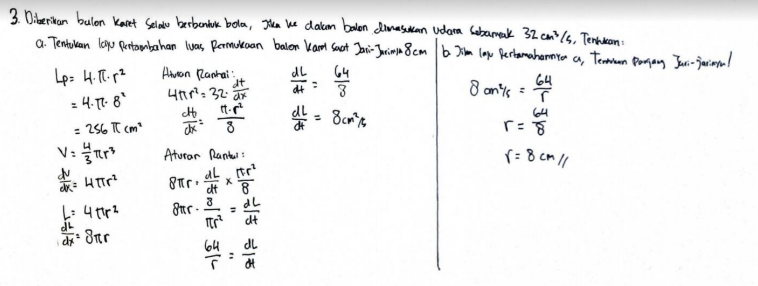 3. Diberikan balon karet selalu berbentuk bola, Jika ke dalam balon dimasukan udara sebanyak 32 cm³/s, Tentukan:
a. Tentukan laju Pertambahan luas Permukaan balon karet saat Jari-Jarinya 8 cm
Lp = 4.π.r²
= 4.π.8²
= 256 π cm²
V = 4/3 πr³
dv/dx = 4πr²
L = 4πr²
dL/dx = 8πr
Aturan Rantai:
4πr² = 32 . dt/dx
dt/dx = π.r²/8
Aturan Rantai:
8πr = dL/dt x πr²/8
8πr . 8/πr² = dL/dt
64/r = dL/dt
dL/dt = 64/8
dL/dt = 8 cm²/s
b. Jika laju Pertamahannya a, Tentukan Panjang Jari-jarinya!
8 cm²/s = 64/r
r = 64/8
r = 8 cm //